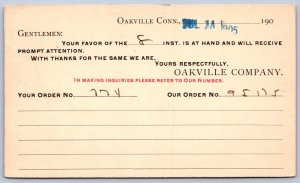 OAKVILLE CONN., JUL 11 1905 190
GENTLEMEN:
YOUR FAVOR OF THE 8 INST. IS AT HAND AND WILL RECEIVE
PROMPT ATTENTION.
WITH THANKS FOR THE SAME WE ARE,
YOURS RESPECTFULLY,
OAKVILLE COMPANY.
IN MAKING INQUIRIES PLEASE REFER TO OUR NUMBER.
YOUR ORDER NO. 774 OUR ORDER NO. 95175